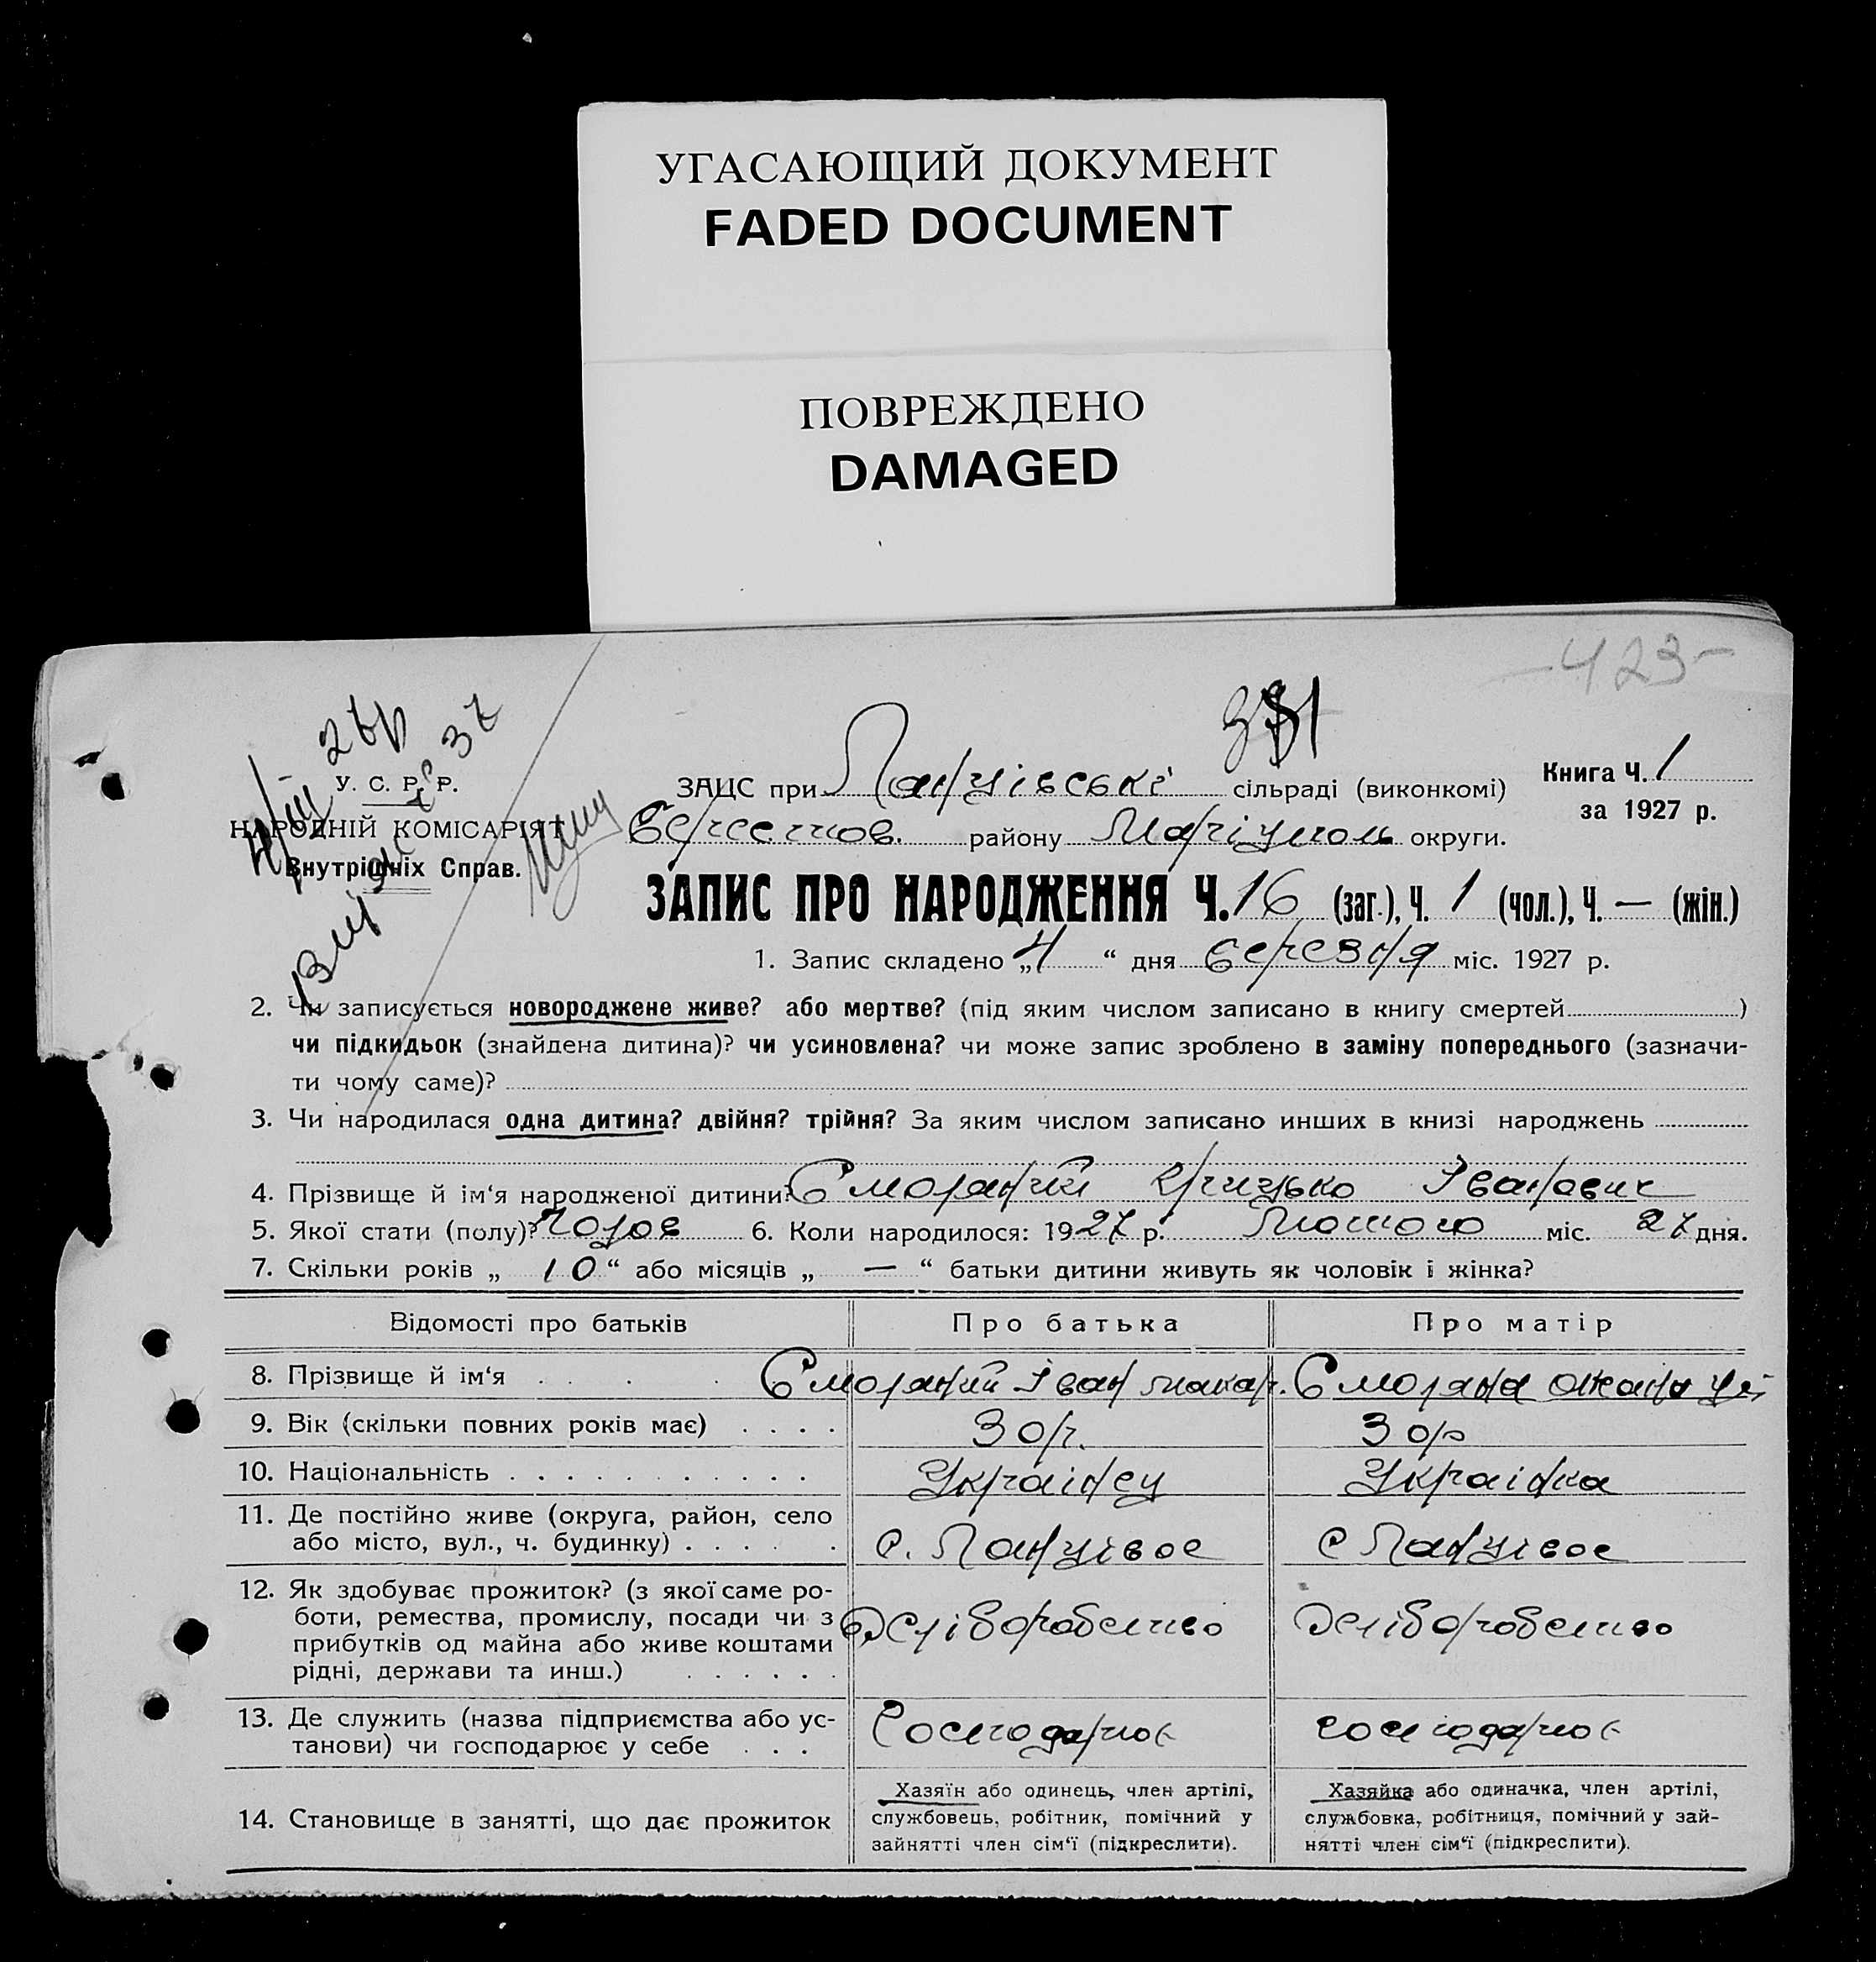 УГАСАЮЩИЙ ДОКУМЕНТ
FADED DOCUMENT
ПОВРЕЖДЕНО
DAMAGED
-423-
У. С. Р. Р.
НАРОДНІЙ КОМІСАРІЯТ
Внутрішніх Справ.
ЗАЦС при Ланцівські сільраді (виконкомі)
Книга Ч. 1
за 1927 р.
району Маріуполь округи.
ЗАПИС ПРО НАРОДЖЕННЯ Ч. 16 (заг.), Ч. 1 (чол.), Ч. — (жін.)
1. Запис складено „4“ дня березня міс. 1927 р.
2. Чи записується новороджене живе? або мертве? (під яким числом записано в книгу смертей )
чи підкидьок (знайдена дитина)? чи усиновлена? чи може запис зроблено в заміну попереднього (зазначи-
ти чому саме)?
3. Чи народилася одна дитина? двійня? трійня? За яким числом записано инших в книзі народжень
4. Прізвище й ім‘я народженої дитини? Смоляний Грицько Іванович
5. Якої стати (полу)? Чолов 6. Коли народилося: 1927 р. Лютого міс. 27 дня.
7. Скільки років „10“ або місяців „—“ батьки дитини живуть як чоловік і жінка?
Відомості про батьків Про батька Про матір
8. Прізвище й ім‘я . . . . Смоляний Іван Макар. Смоляна
9. Вік (скільки повних років має) . . . . 30 р. 30 р
10. Національність . . . . . . . . . . . Українец Українка
11. Де постійно живе (округа, район, село
або місто, вул., ч. будинку) . . . . . с. Ланцівое с Ланцівое
12. Як здобуває прожиток? (з якої саме ро-
боти, ремества, промислу, посади чи з
прибутків од майна або живе коштами
рідні, держави та инш.) . . . . . .
Хліборобство Хліборобство
13. Де служить (назва підприємства або ус-
танови) чи господарює у себе . . .
Господарює господарює
14. Становище в занятті, що дає прожиток
Хазяїн або одинець, член артілі,
службовець, робітник, помічний у
зайнятті член сім‘ї (підкреслити).
Хазяйка або одиначка, член артілі,
службовка, робітниця, помічний у зай-
нятті член сім‘ї (підкреслити).